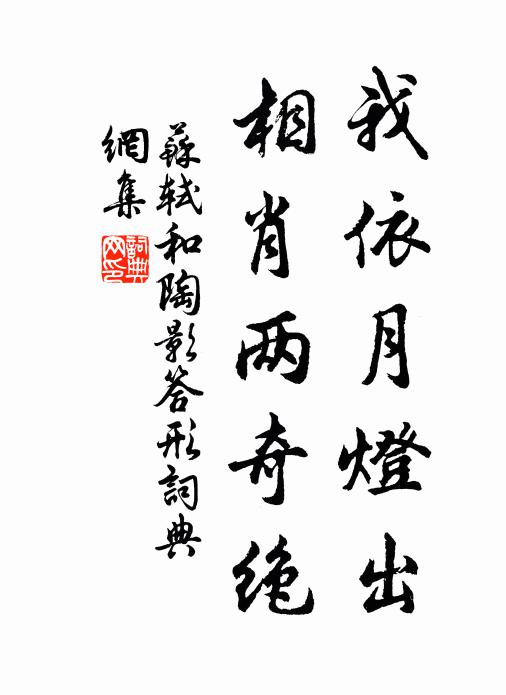 我依月燈出
相肖两奇絶
蘇軾和陶影答形詞典
網集
詞典網印